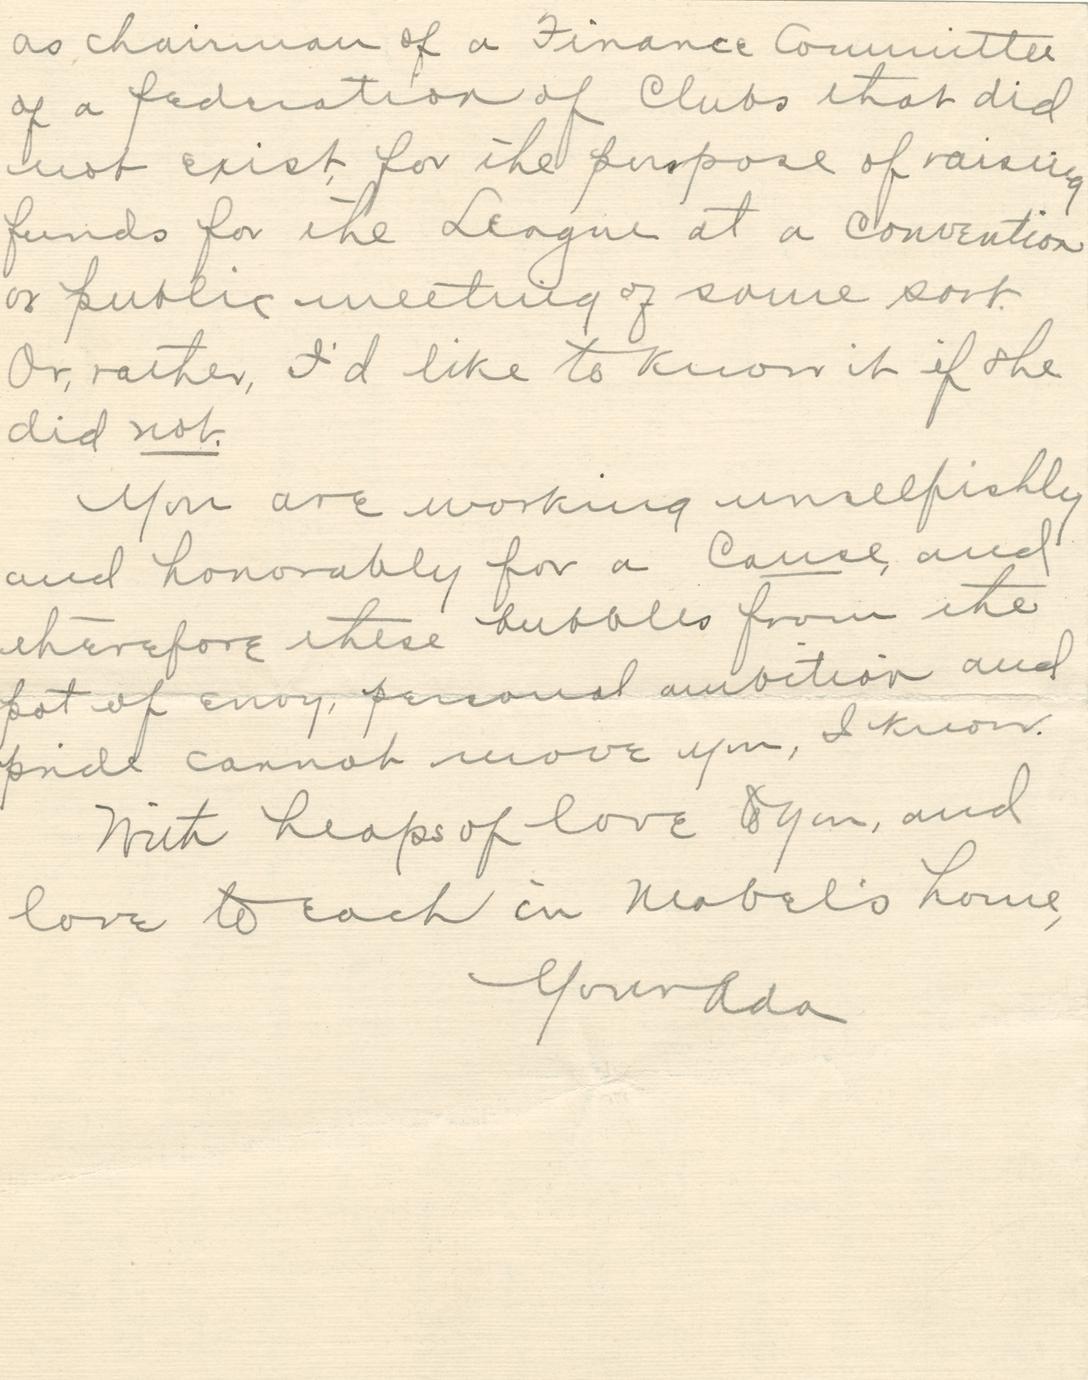 as chairman of a Finance Committee
of a federation of Clubs that did
not exist, for the purpose of raising
funds for the League at a Convention
or public meeting of some sort.
Or, rather, I'd like to know it if she
did not.
You are working unselfishly
and honorably for a Cause, and
therefore these bubbles from the
pot of envy, personal ambition and
pride cannot move you, I know.
With heaps of love to you, and
love to each in Mabel's home,
Your Ada